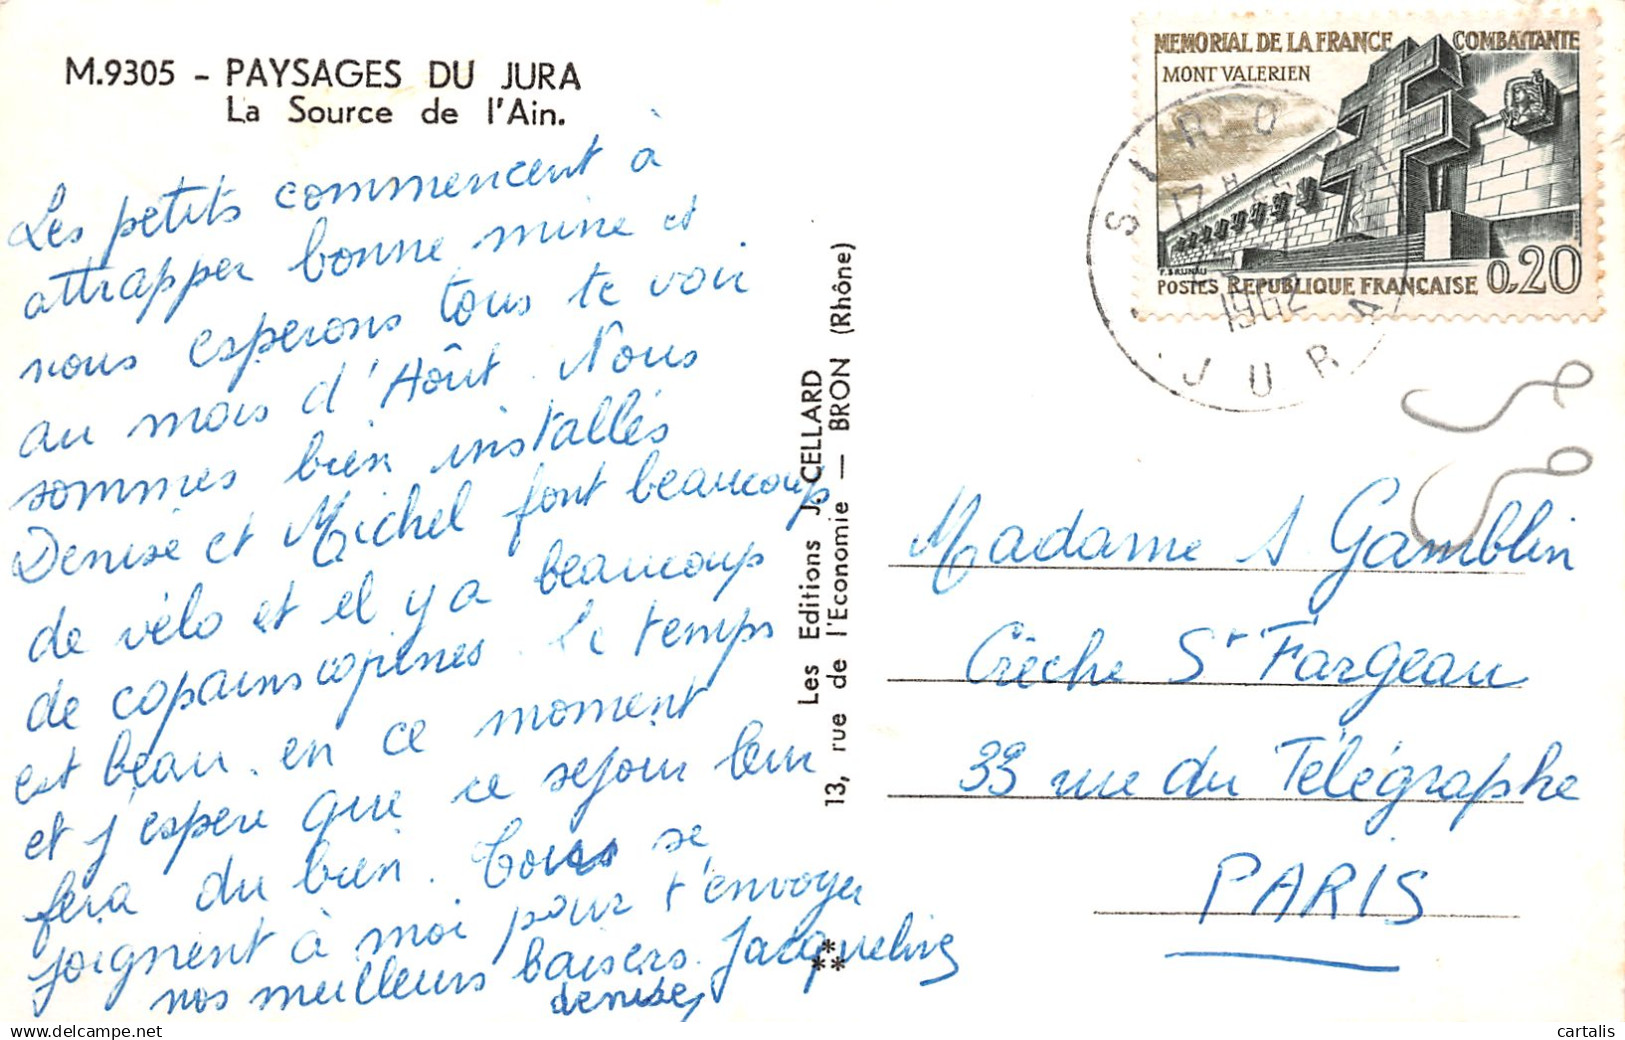 M.9305 - PAYSAGES DU JURA
La Source de l'Ain.
Les petits commencent à
attrapper bonne mine et
nous esperons tous te voir
au mois d'Aôut. Nous
sommes bien installés
Denise et Michel font beaucoup
de vélo et il y a beaucoup
de copains copines. Le temps
est beau en ce moment
et j'espere que ce sejour leur
fera du bien. Tous se
joignent à moi pour t'envoyer
nos meilleurs baisers. Jacqueline
denise
Les Editions J. CELLARD
13, rue de l'Economie — BRON (Rhône)
MEMORIAL DE LA FRANCE COMBATTANTE
MONT VALERIEN
P. BRUNAU
POSTES REPUBLIQUE FRANÇAISE 0,20
SIROD
17 H
1962
JURA
Madame A. Gamblin
Crèche St Fargeau
33 rue du Télégraphe
PARIS
cartalis